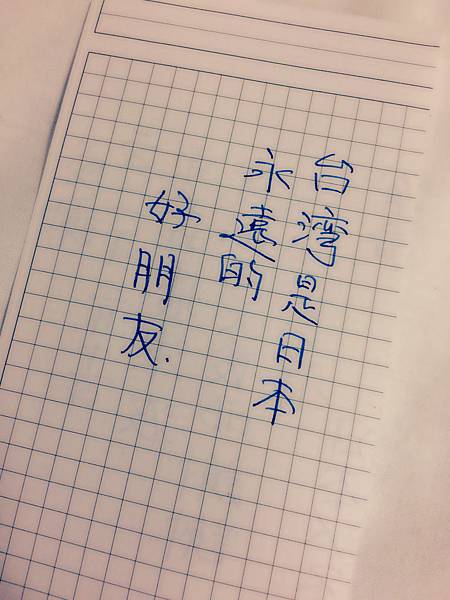 台湾是日本
永遠的
好朋友.